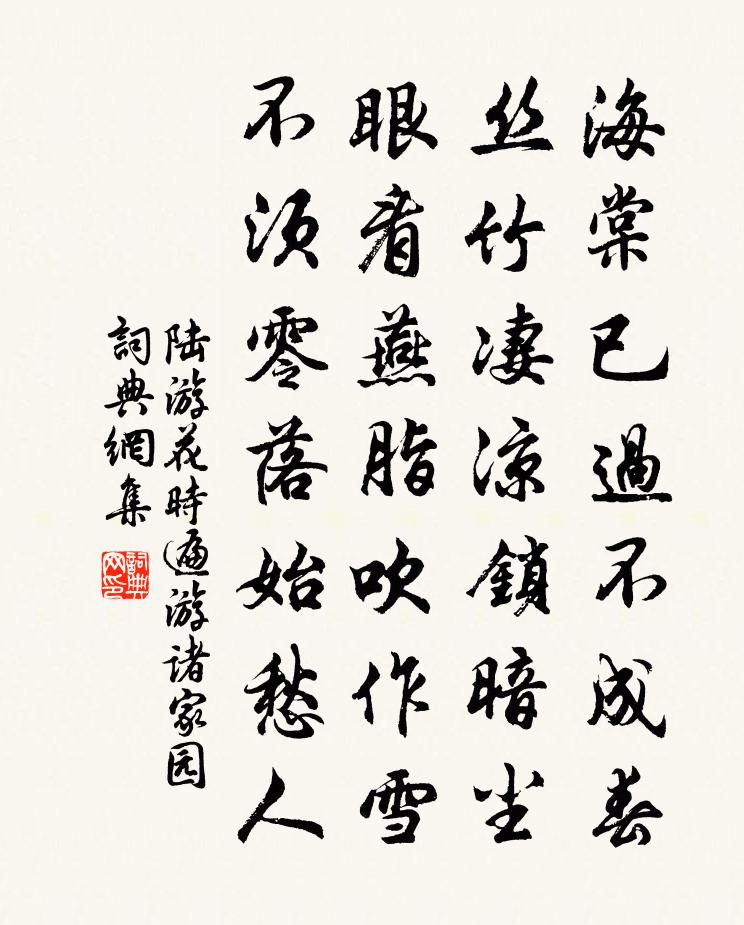 海棠已過不成春
丝竹凄涼鎖暗尘
眼看燕脂吹作雪
不须零落始愁人
陆游花時遍游诸家园
詞典網集
詞典
网印